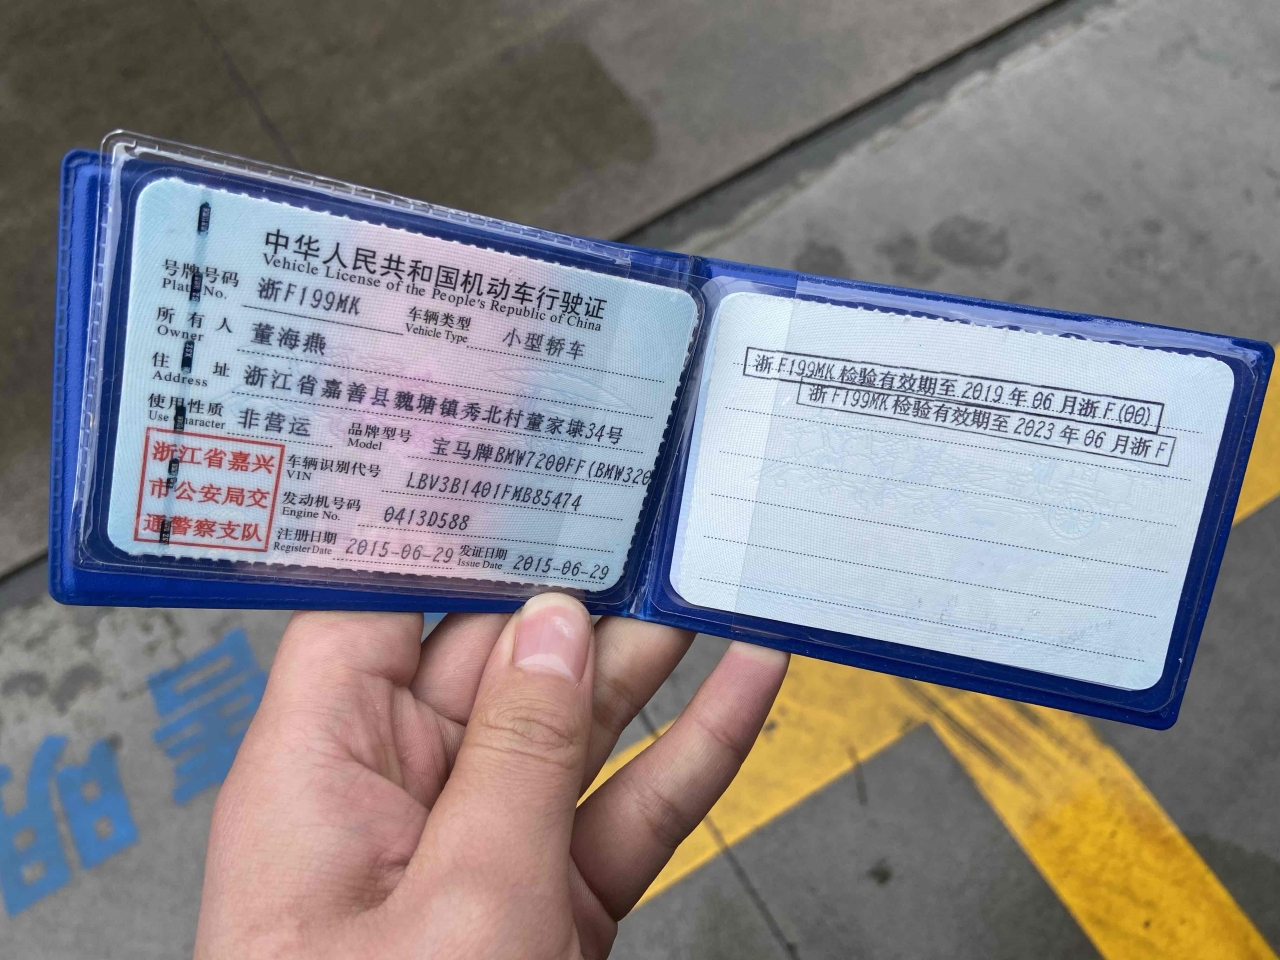 中华人民共和国机动车行驶证
Vehicle License of the People's Republic of China
号牌号码 浙F199MK 车辆类型 小型轿车
Plate No. Vehicle Type
所有人 董海燕
Owner
住址 浙江省嘉善县魏塘镇秀北村董家埭34号
Address
使用性质 非营运 品牌型号 宝马牌BMW7200FF(BMW320
Use Character Model
浙江省嘉兴
市公安局交
通警察支队
车辆识别代号 LBV3B1401FMB85474
VIN
发动机号码 0413D588
Engine No.
注册日期 2015-06-29 发证日期 2015-06-29
Register Date Issue Date
浙F199MK检验有效期至2019年06月浙F(00)
浙F199MK检验有效期至2023年06月浙F